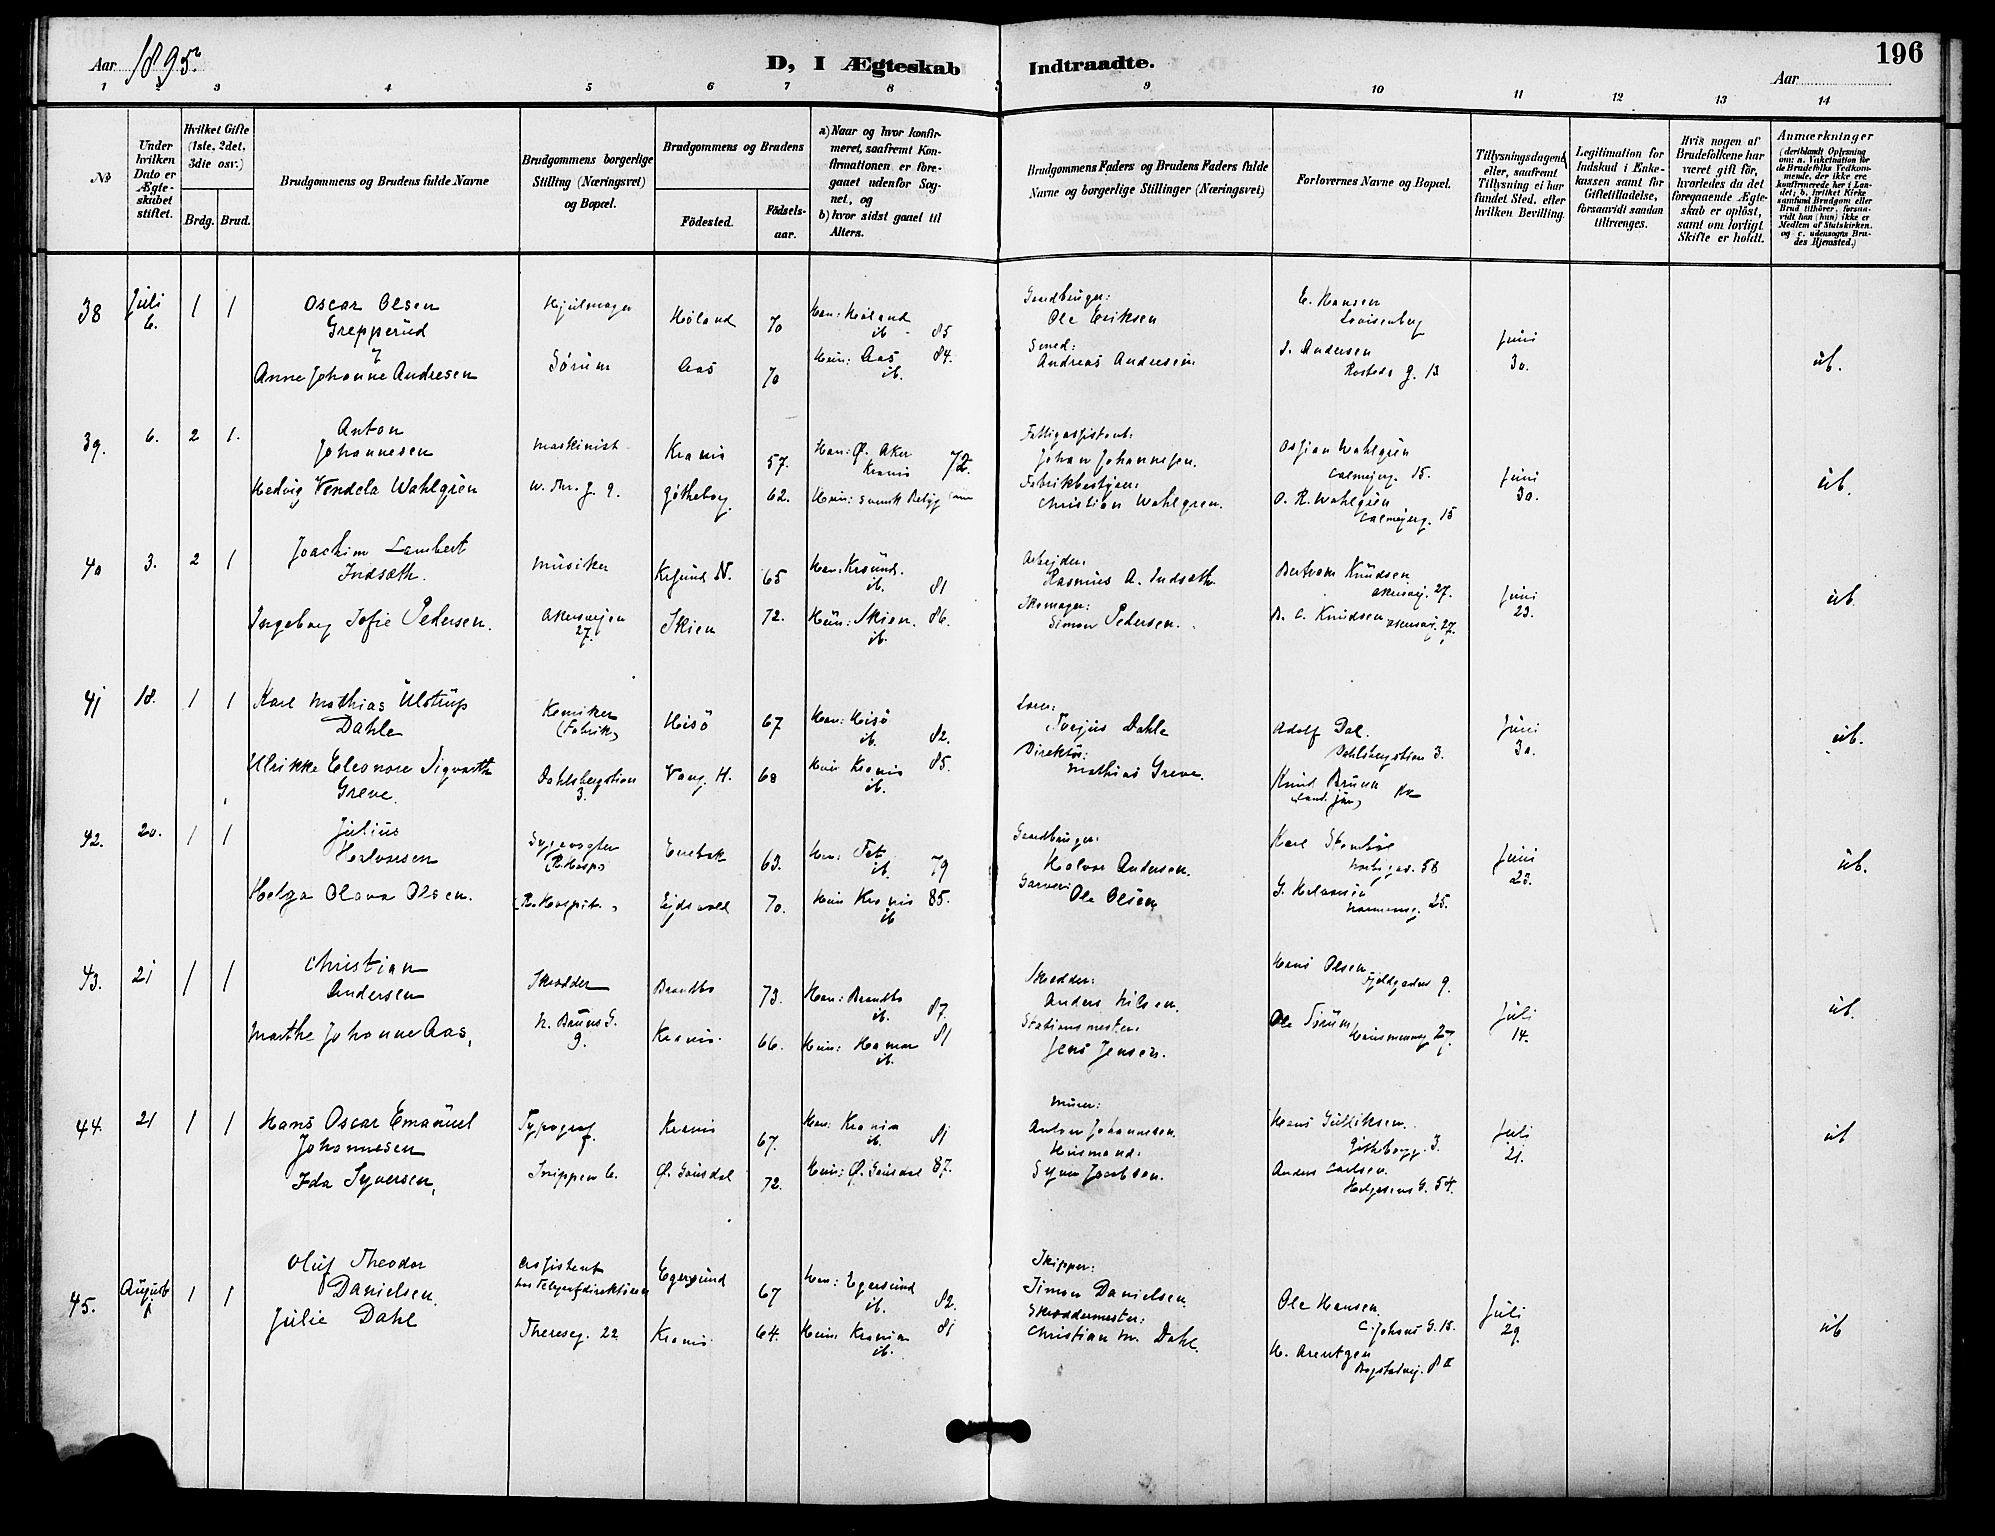 Aar 1895.
D, I Ægteskab Indtraadte.
196
Aar
1 2 3 4 5 6 7 8 9 10 11 12 13 14
No
Under hvilken Dato er Ægteskabet stiftet.
Hvilket Gifte (1ste, 2det, 3die osv.)
Brdg. Brud.
Brudgommens og Brudens fulde Navne
Brudgommens borgerlige Stilling (Næringsvei) og Bopæl.
Brudgommens og Brudens
Födested. Födselsaar.
a) Naar og hvor konfirmeret, saafremt Konfirmationen er foregaaet udenfor Sognet, og
b) hvor sidst gaaet til Alters.
Brudgommens Faders og Brudens Faders fulde Navne og borgerlige Stillinger (Næringsvei)
Forlovernes Navne og Bopæl.
Tillysningsdagene eller, saafremt Tillysning ei har fundet Sted, efter hvilken Bevilling.
Legitimation for Indskud i Enkekassen samt for Giftetilladelse, forsaavidt saadan tiltrænges.
Hvis nogen af Brudefolkene har været gift før, hvorledes da det foregaaende Ægteskab er opløst, samt om lovligt Skifte er holdt.
Anmærkninger (deriblandt Oplysning om: a. Vakcination for de Brudefolks Vedkommende, der ikke ere konfirmerede her i Landet; b. hvilket Kirkesamfund Brudgom eller Brud tilhører, forsaavidt han (hun) ikke er Medlem af Statskirken, og c. udensogns Brudes Hjemsted.)
38 Juli 6. 1 1
Oscar Olsen
Grepperud
&
Anne Johanne Andresen
Hjulmager
Sørum
Høland 70
Aas 70
Han: Høland
ib. 85
Hun: Aas 84.
ib.
Gaardbruger:
Ole Eriksen
Smed:
Andreas Andresen.
E. Hansen
Louisenberg
S. Andersen
Rosteds g. 13
Juni
30.
ub.
39. 6. 2 1.
Anton
Johannesen
Hedvig Vendela Wahlgren
Maskinist
W. Thr. g. 9.
Krania 57.
Gøtheborg 62.
Han: Ø. Aker
Krania 72.
Hun: svensk
Fattigassistent:
Johan Johannesen.
Christian Wahlgren.
Wahlgren
Calmeyerg. 15.
O. R. Wahlgren
Calmeyerg. 15
Juni
30.
ub.
40 3. 2 1
Joachim Lambert
Indsæth.
Ingeborg Sofie Pedersen.
Musiker
Akersvejen
27.
Krsund N. 65
Skien 72.
Han: Krsund.
ib. 81
Hun: Skien. 86.
ib.
Arbejder:
Rasmus A. Indsæth
Skomager:
Simon Pedersen.
Bertram Knudsen
Akersvej. 27.
B. C. Knudsen Akersvej. 27.
Juni
23.
ub.
41 18. 1 1
Karl Mathias Ulstrup
Dahle
Ulrikke Eleonore Sigvarth
Greve.
Kemiker
(Fabrik)
Dahlsbergstien
3.
Hisö 67
Vang. H. 68
Han: Hisö
ib. 82.
Hun Krania 85.
ib.
Torjus Dahle
Direktör:
Mathias Greve.
Adolf Dal.
Dahlsbergstien 3.
Knud Bruun
Juni
30.
ub.
42. 20. 1 1
Julius
Halvorsen
Helga Olava Olsen.
Sygevogter
(R. Hosp)
(R. Hospit.)
Enebak 63.
Eidsvold 70.
Han: Fet
ib. 79
Hun Krania 85.
ib
Gaardbruger:
Halvor Andersen.
Garver:
Ole Olsen
Karl
58
G. Halvorsen
25.
Juni
23.
ub.
43. 21 1 1
Christian
Andersen
Marthe Johanne Aas,
Skrædder
N. Bruns G.
9.
Brandbo 73.
Krania. 66.
Han: Brandbo
ib. 87.
Hun: Hamar 81
ib.
Skrædder:
Anders Nilsen.
Stationsmester:
Jens Jensen.
Hans Olsen
Fjeldgaden 9.
Ole Sørum
Hausmannsg. 27.
Juli
14.
ub.
44. 21 1 1
Hans Oscar Emanuel
Johannesen
Ida Syversen,
Typograf
Snippen 6.
Krania 67.
Ø. Gausdal 72.
Han: Krania
ib. 81
Hun: Ø. Gausdal 87.
Murer:
Anton Johannesen.
Husmand:
Syver Jacobsen.
Hans Gulliksen.
Götheborgg. 3.
Anders Carlsen.
Helgesens G. 54.
Juli
21.
ub
45. August 1 1
Oluf Theodor
Danielsen.
Julie Dahl
Assistent
hos Telegrafdirektören
Thereseg. 22
Egersund 67
Krania. 64.
Han: Egersund
ib. 82.
Hun: Krania 81
ib.
Skipper:
Simon Danielsen.
Skræddermester:
Christian M. Dahl.
Ole Hansen.
C. Johans G. 18.
H. Arentzen
Bogstadvej. 8 II
Juli
29.
ub